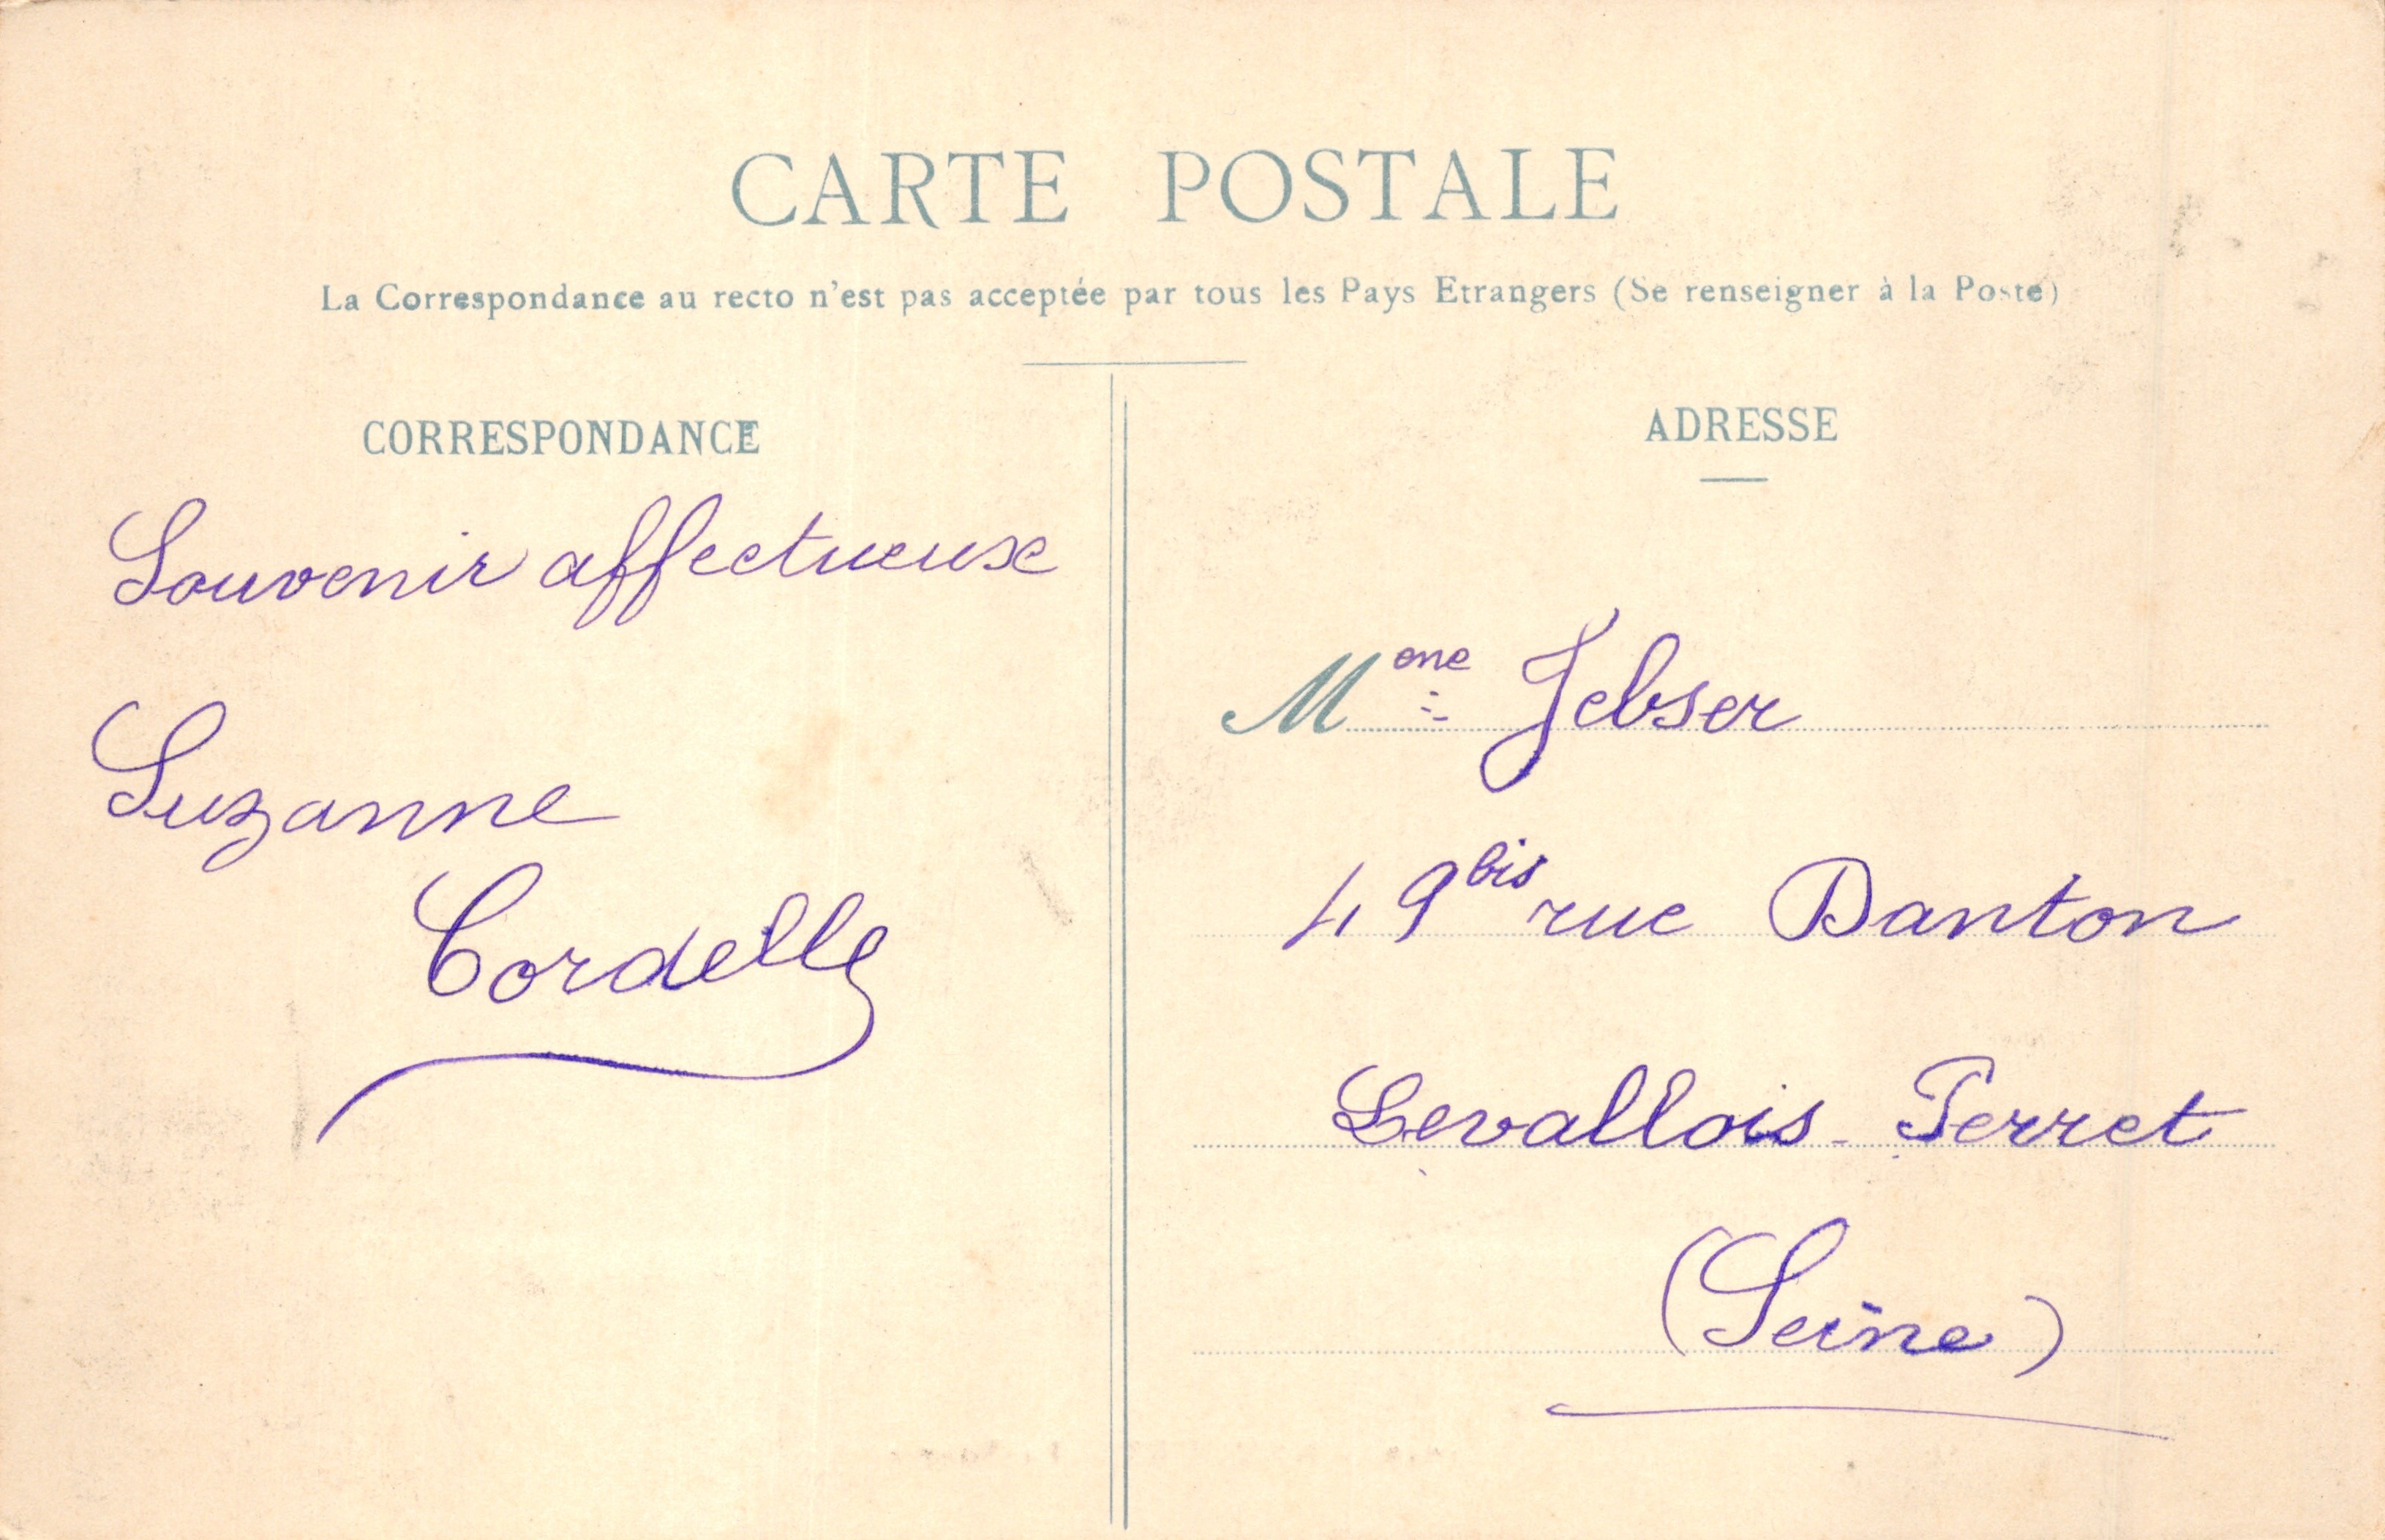 CARTE POSTALE
La Correspondance au recto n'est pas acceptée par tous les Pays Etrangers (Se renseigner à la Poste)
CORRESPONDANCE
Souvenir affectueux
Suzanne
Cordelle
ADRESSE
Mme Jebser
49bis rue Danton
Levallois-Perret
(Seine)